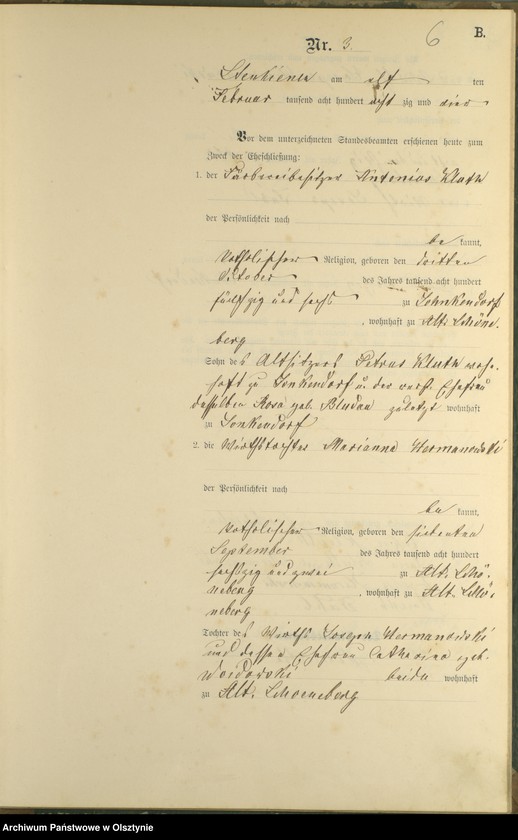 B.
6
Nr. 3.
am elf ten
Februar tausend acht hundert acht zig und vier
Vor dem unterzeichneten Standesbeamten erschienen heute zum
Zweck der Eheschließung:
1. der Färbereibesitzer Antonius Kluth
der Persönlichkeit nach
be kannt,
katholischer Religion, geboren den dritten
October des Jahres tausend acht hundert
fünfzig und sechs zu Jonkendorf
, wohnhaft zu Alt. Schöne-
berg
Sohn des Altsitzers Petrus Kluth wohn-
haft zu Jonkendorf u. der verst. Ehefrau
desselben Rosa geb. Bludau zuletzt wohnhaft
zu Jonkendorf
2. die Wirthstochter Marianna Hermanowski
der Persönlichkeit nach
be kannt,
katholischer Religion, geboren den siebenten
September des Jahres tausend acht hundert
sechszig und zwei zu Alt. Schö-
neberg , wohnhaft zu Alt. Schö-
neberg
Tochter des Wirths Joseph Hermanowski
und dessen Ehefrau Catharina geb.
beide wohnhaft
zu Alt. Schoeneberg
Archiwum Państwowe w Olsztynie